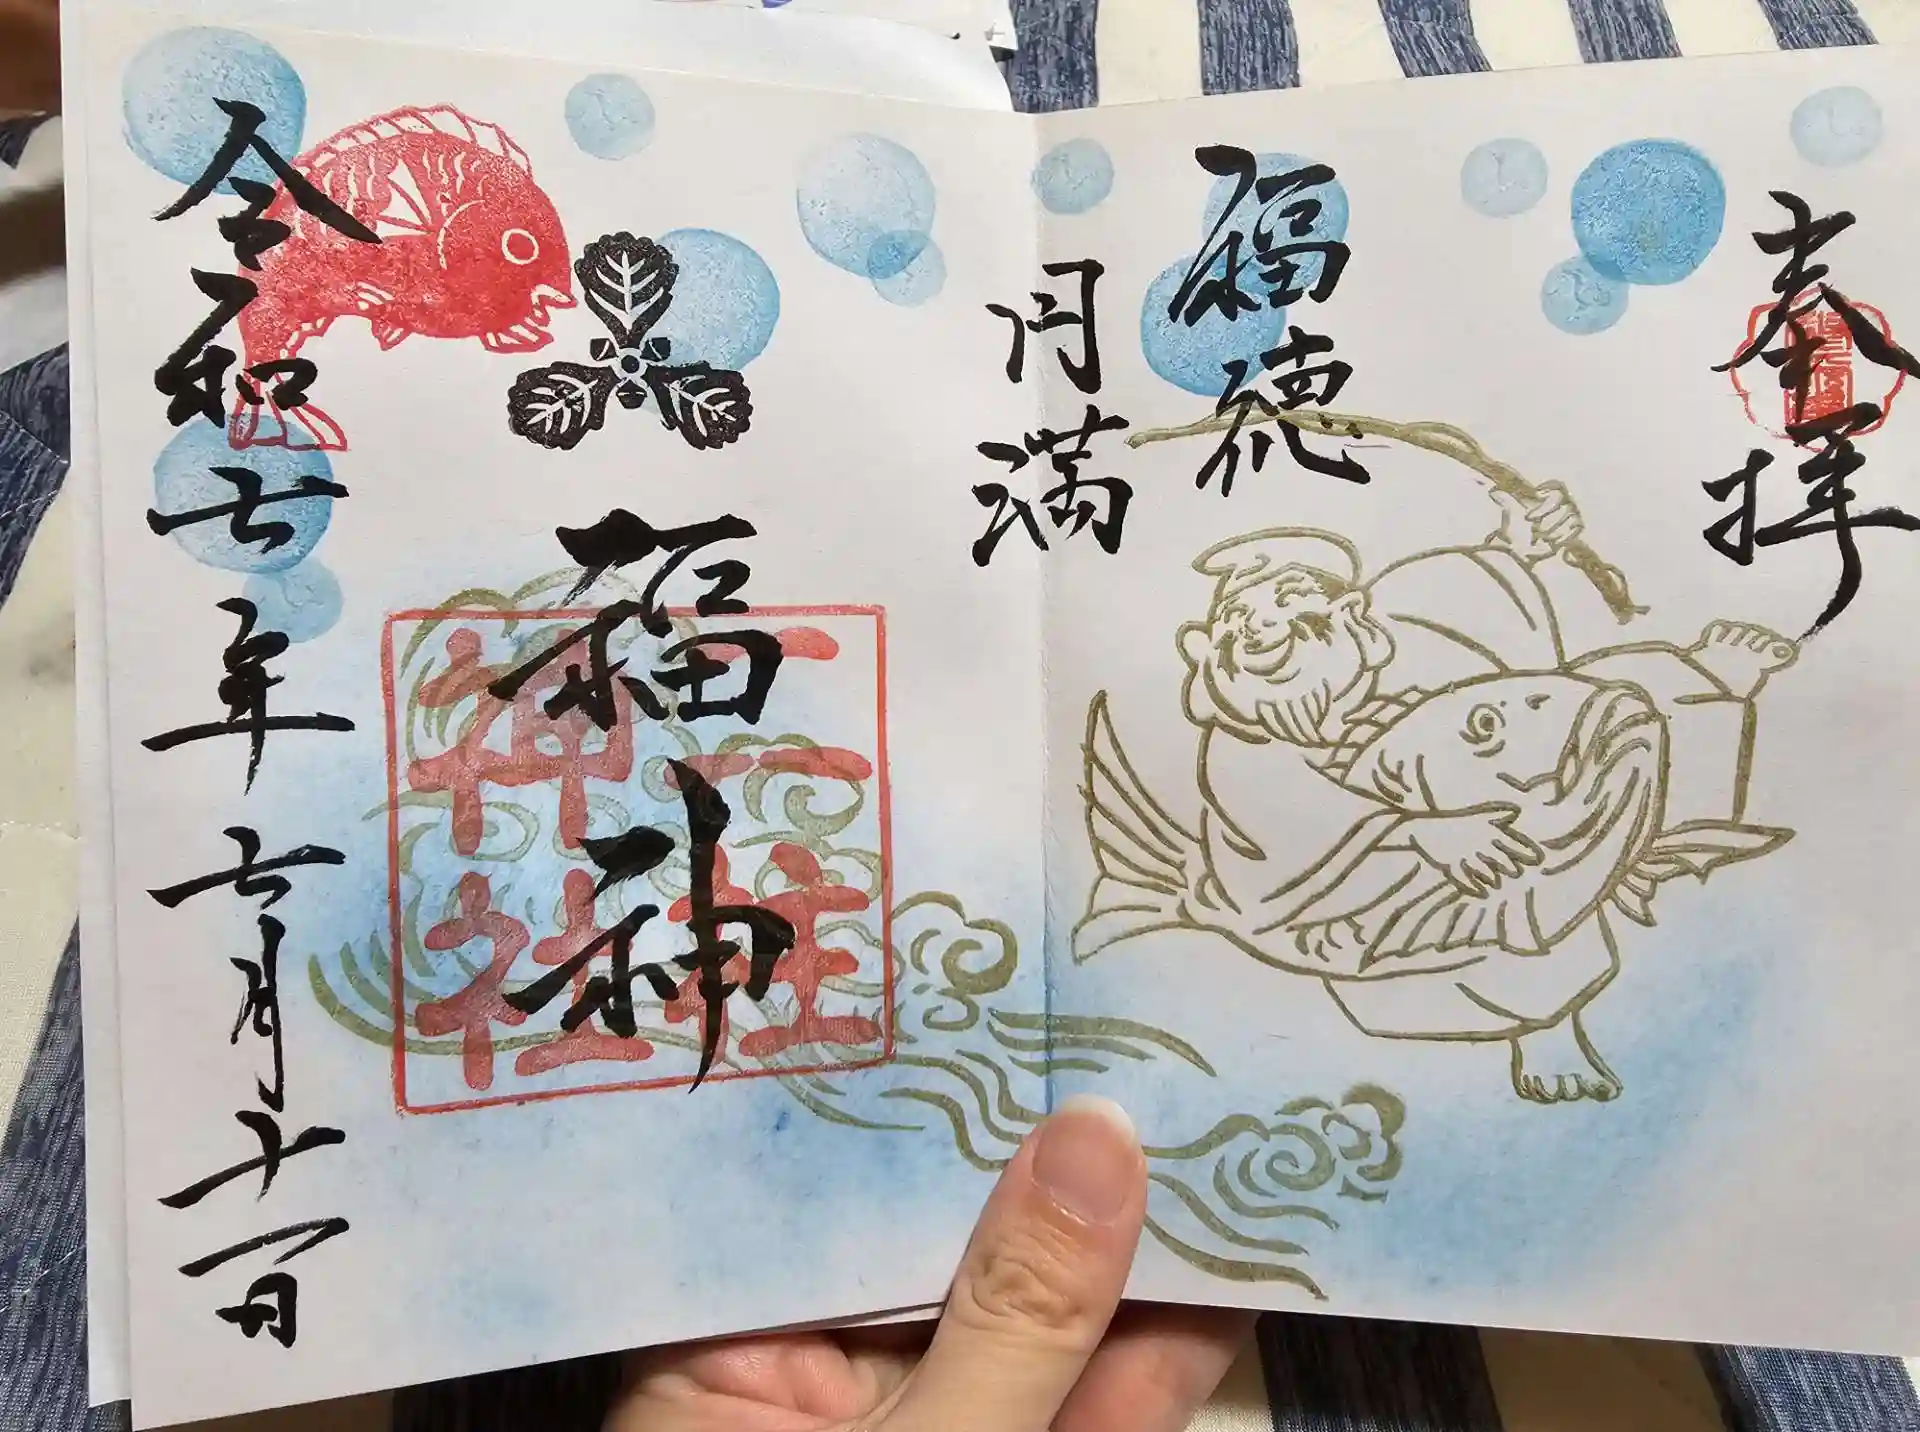 奉拝
福徳
円満
福神
二
三柱
神社
令和七年七月十一日